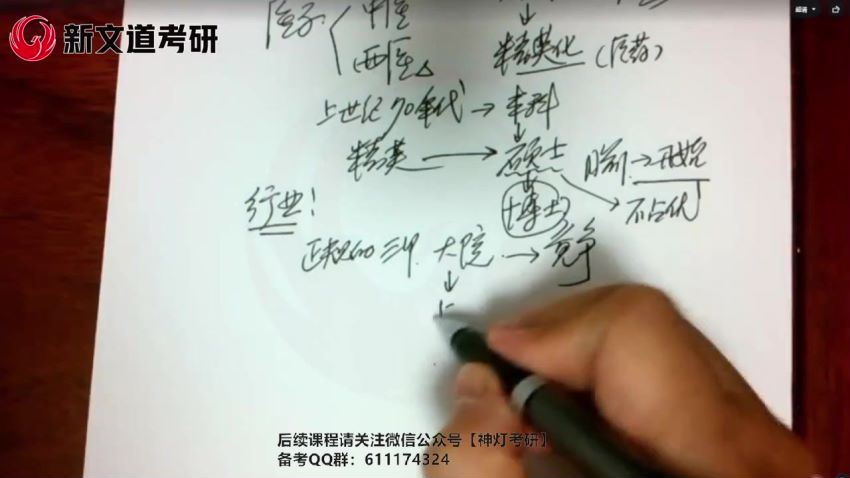 新文道考研
超清
医学 中医
西医
精英化 (医药)
上世纪70年代 → 本科
精英 → 硕士 目前 → 开始
博士 不占优
行业!
正规的三甲 大院 → 竞争
后续课程请关注微信公众号【神灯考研】
备考QQ群：611174324